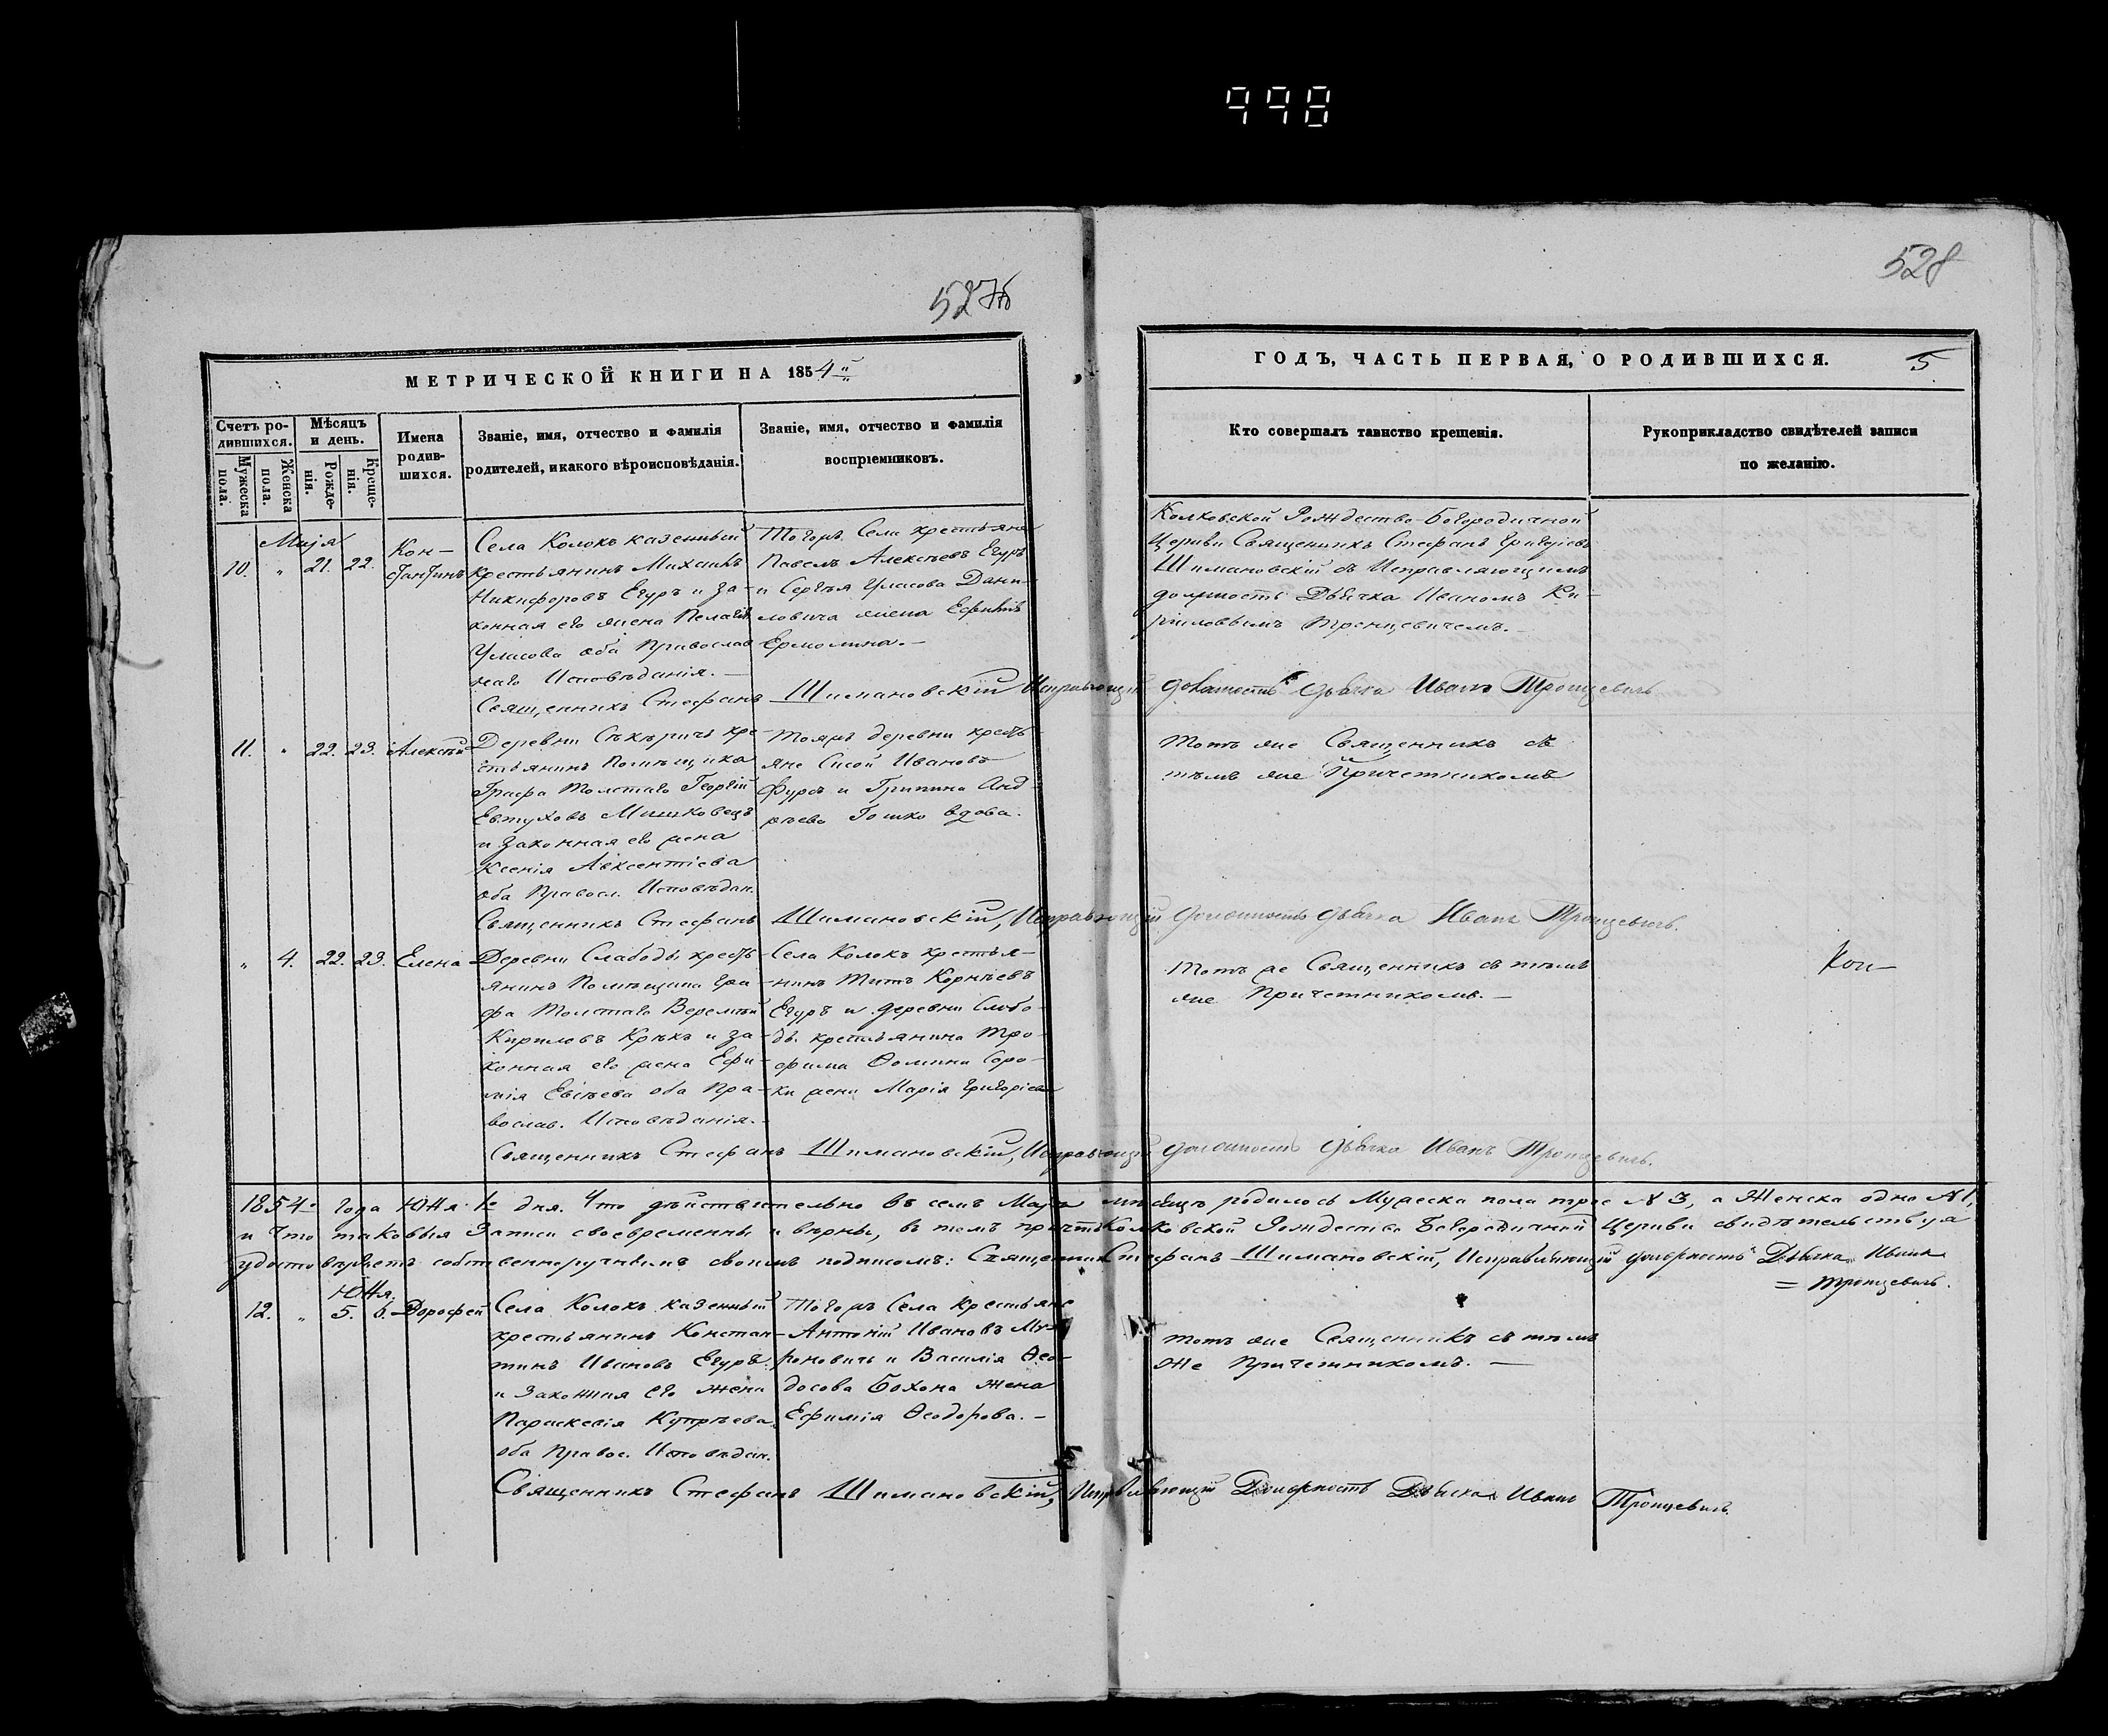 998
527об
528
МЕТРИЧЕСКОЙ КНИГИ НА 1854й
Счетъ ро-
дившихся.
Мужеска
пола.
Женска
пола.
Мѣсяцъ
и день.
Рожде-
нія.
Креще-
нія.
Имена
родив-
шихся.
Званіе, имя, отчество и фамилія
родителей, и какого вѣроисповѣданія.
Званіе, имя, отчество и фамилія
воспріемниковъ.
ГОДЪ, ЧАСТЬ ПЕРВАЯ, О РОДИВШИХСЯ.
5
Кто совершалъ таинство крещенія.
Рукоприкладство свидѣтелей записи
по желанію.
Маія
10. " 21. 22.
Кон-
стантинъ
Села Колокъ казенный
крестьянинъ Михаилъ
Никифоровъ Егуръ и за-
конная его жена Пелагія
Уласова оба Православ-
наго Исповѣданія.
Тогожъ Села крестьяне
Павелъ Алексѣевъ Егуръ
и Сергѣя Уласова Дани-
ловича жена Ефимія
Ермолина.
Колковской Рождество-Богородичной
Церкви Священникъ Стефанъ Григоріевъ
Шимановскій съ Исправляющимъ
должность Дьячка Иваномъ Ки-
риловымъ Тронцевичемъ.
Священникъ Стефанъ Шимановскій Исправляющій должность дьячка Иванъ Тронцевичъ
11. " 22. 23. Алексѣй
Деревни кре-
стьянинъ Помѣщика
Графа Толстаго Георгій
Евтуховъ Мишковецъ
и законная его жена
Ксенія Авксентіева
оба Правосл. Исповѣдан.
Тояжъ деревни кресть-
яне Сисой Ивановъ
Фурсъ и Грипина Анд-
рѣева Гошко вдова.
Тотъ же Священникъ съ
тѣмъ же Причетникомъ
Священникъ Стефанъ Шимановскій, Исправляющій должность дьячка Иванъ Тронцевичъ.
" 4. 22. 23. Елена
Деревни Слободы кресть-
янинъ Помѣщика Гра-
фа Толстаго Веремій
Кириловъ и за-
конная его жена Ефи-
мія Евсѣева оба Пра-
вослав. Исповѣданія.
Села Колокъ крестья-
нинъ Титъ Корнѣевъ
Егуръ и деревни Слобо-
ды крестьянина Тро-
фима Ѳомина Соро-
ки жена Марія Григоріева
Тотъ же Священникъ съ тѣмъ
же Причетникомъ.
Кои-
Священникъ Стефанъ Шимановскій, Исправляющій должность дьячка Иванъ Тронцевичъ.
1854го года Юня 1го дня. Что дѣйствительно въ семъ Маіѣ мѣсяцѣ родилось Мужеска пола трое N 3, а Женска одно N 1,
и что таковыя Записи своевременны и вѣрны, въ томъ причтъ Колковской Рождество Богородичной Церкви свидѣтельствуя
удостовѣряетъ собственноручнымъ своимъ подписомъ: Священникъ Стефанъ Шимановскій, Исправляющій должность Дьячка Иванъ
= Тронцевичъ.
Юня.
12. " 5. 6. Дорофей
Села Колокъ казенный
крестьянинъ Констан-
тинъ Ивановъ Егуръ
и Законная его жена
Параскевія Купрѣева
оба Правос. Исповѣдан.
Тогожъ Села Крестьяне
Антоній Ивановъ Му-
роновичъ и Василія Ѳео-
досова Бохона жена
Ефимія Ѳеодорова.
Тотъ же Священникъ съ тѣмъ
же Причетникомъ.
Священникъ Стефанъ Шимановскій, Исправляющій Должность Дьячка Иванъ Тронцевичъ.